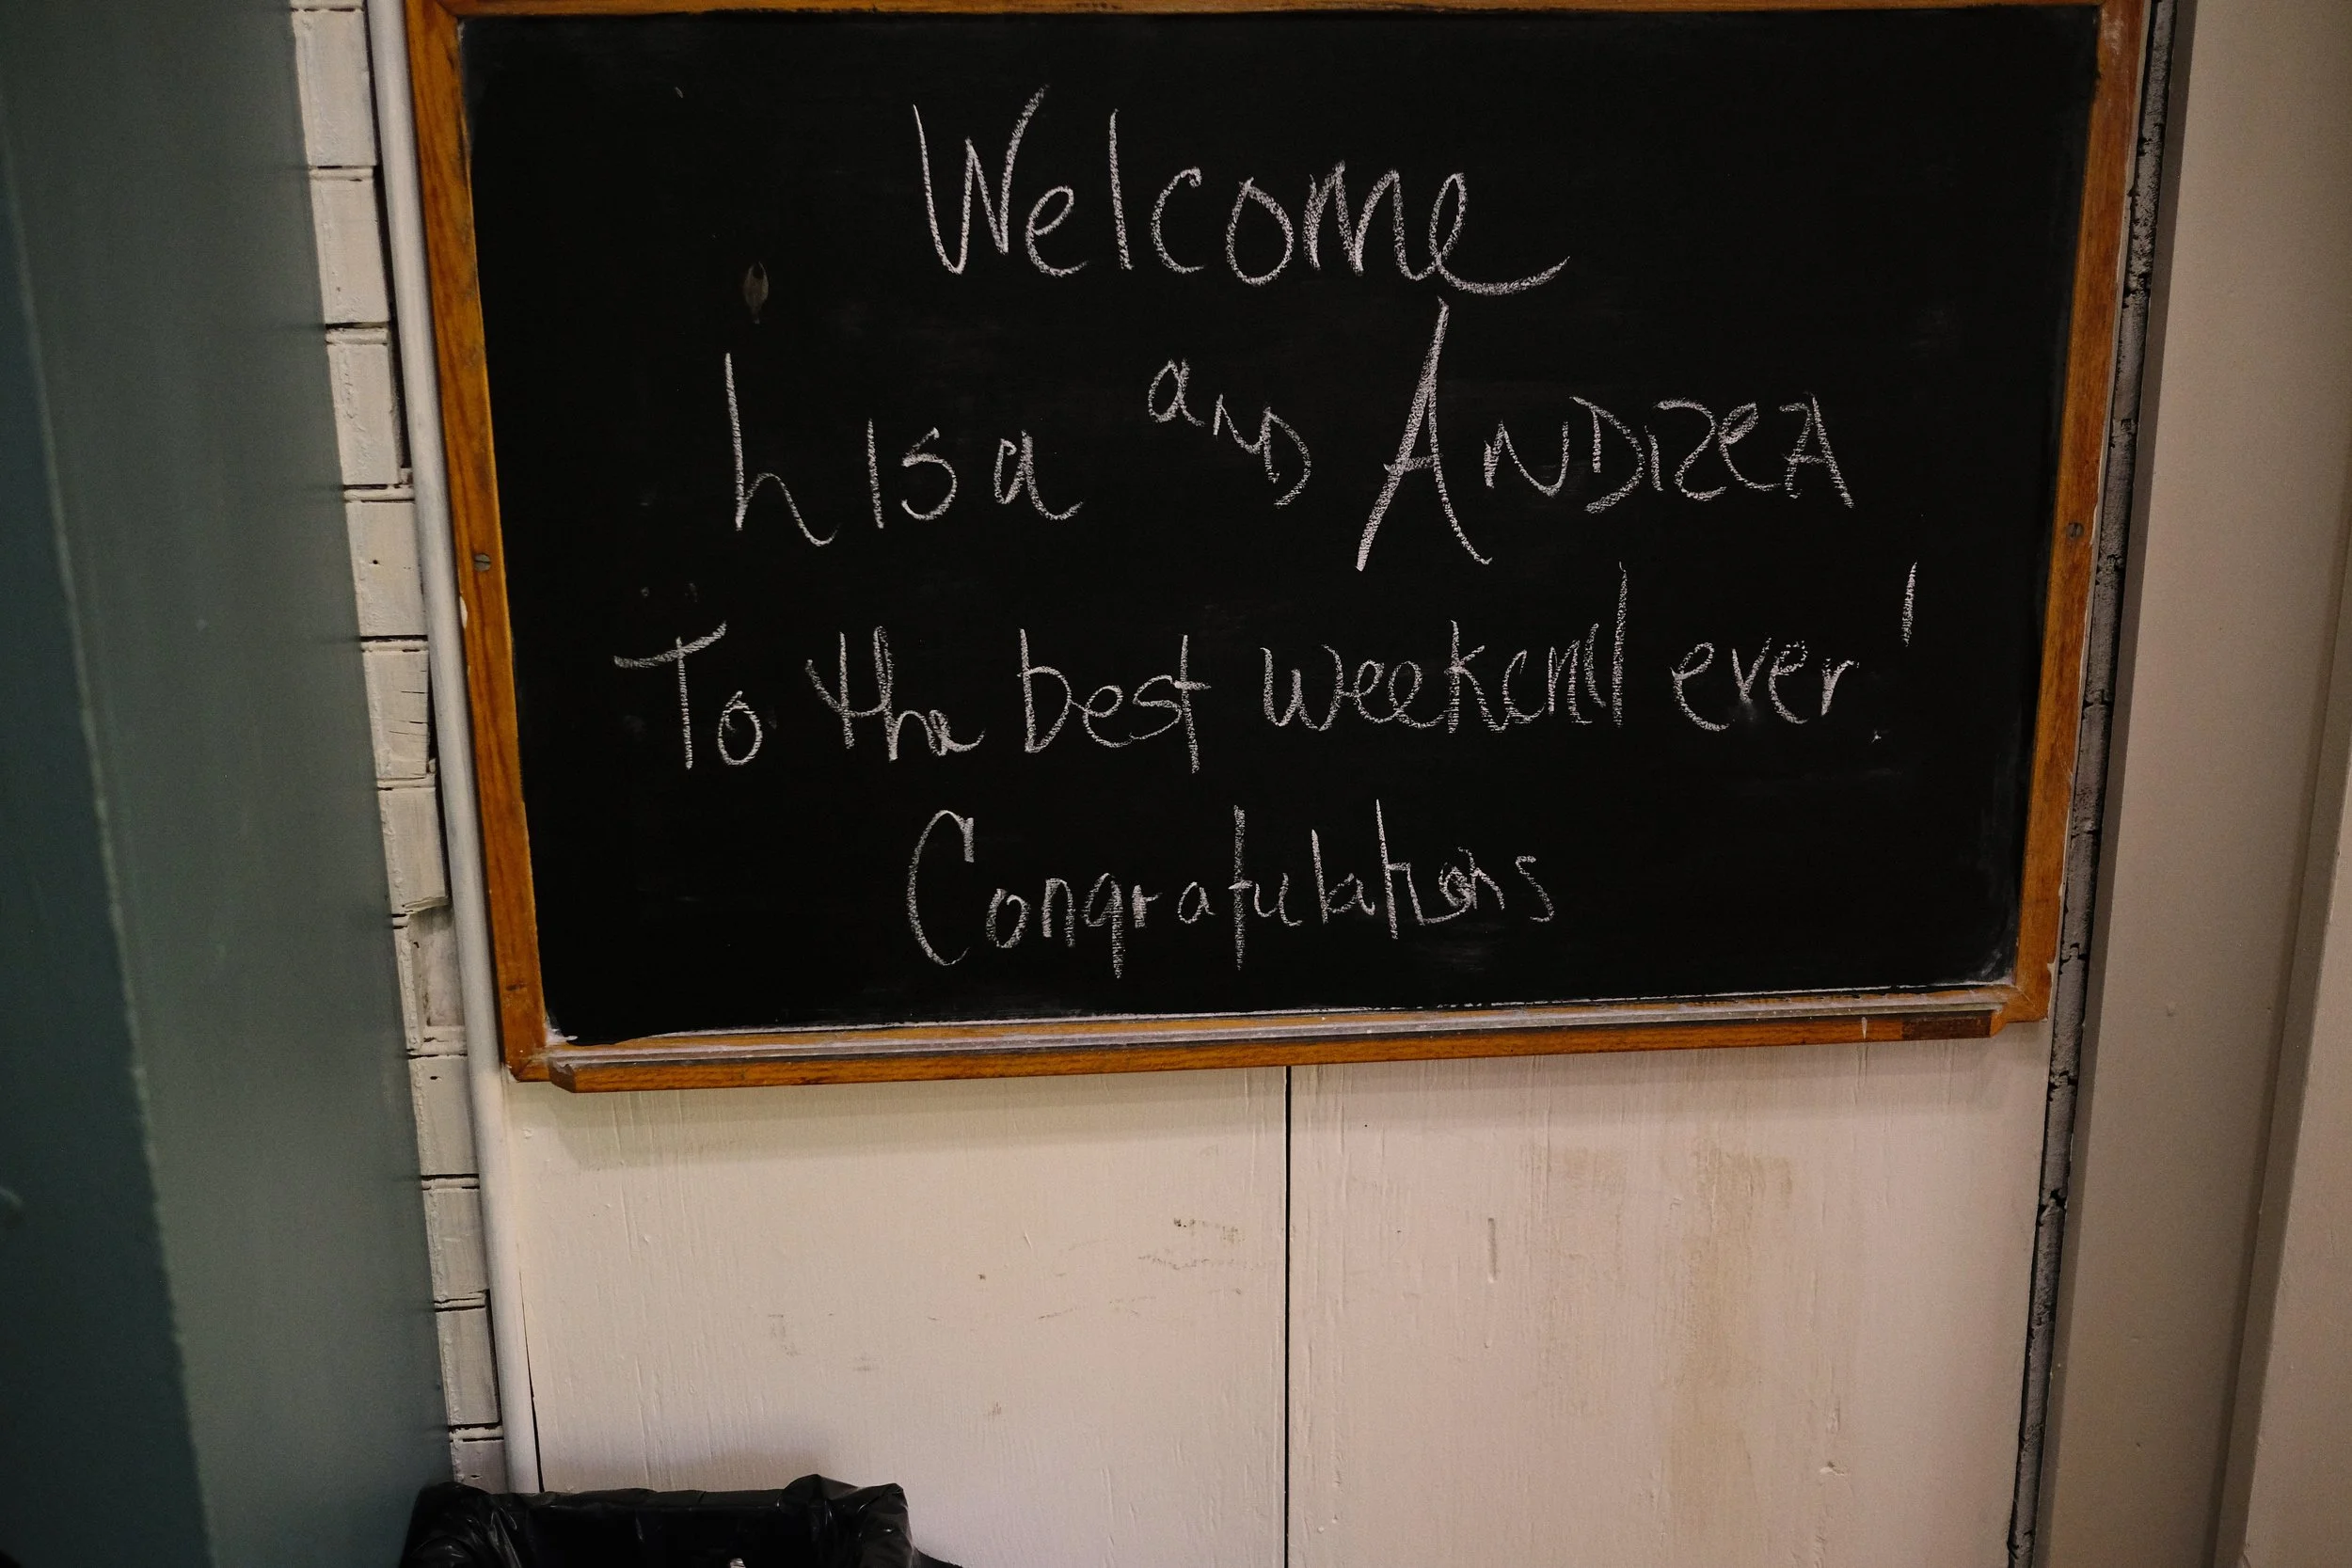 Welcome
Lisa and ANDREA
To the best weekend ever!
Congratulations